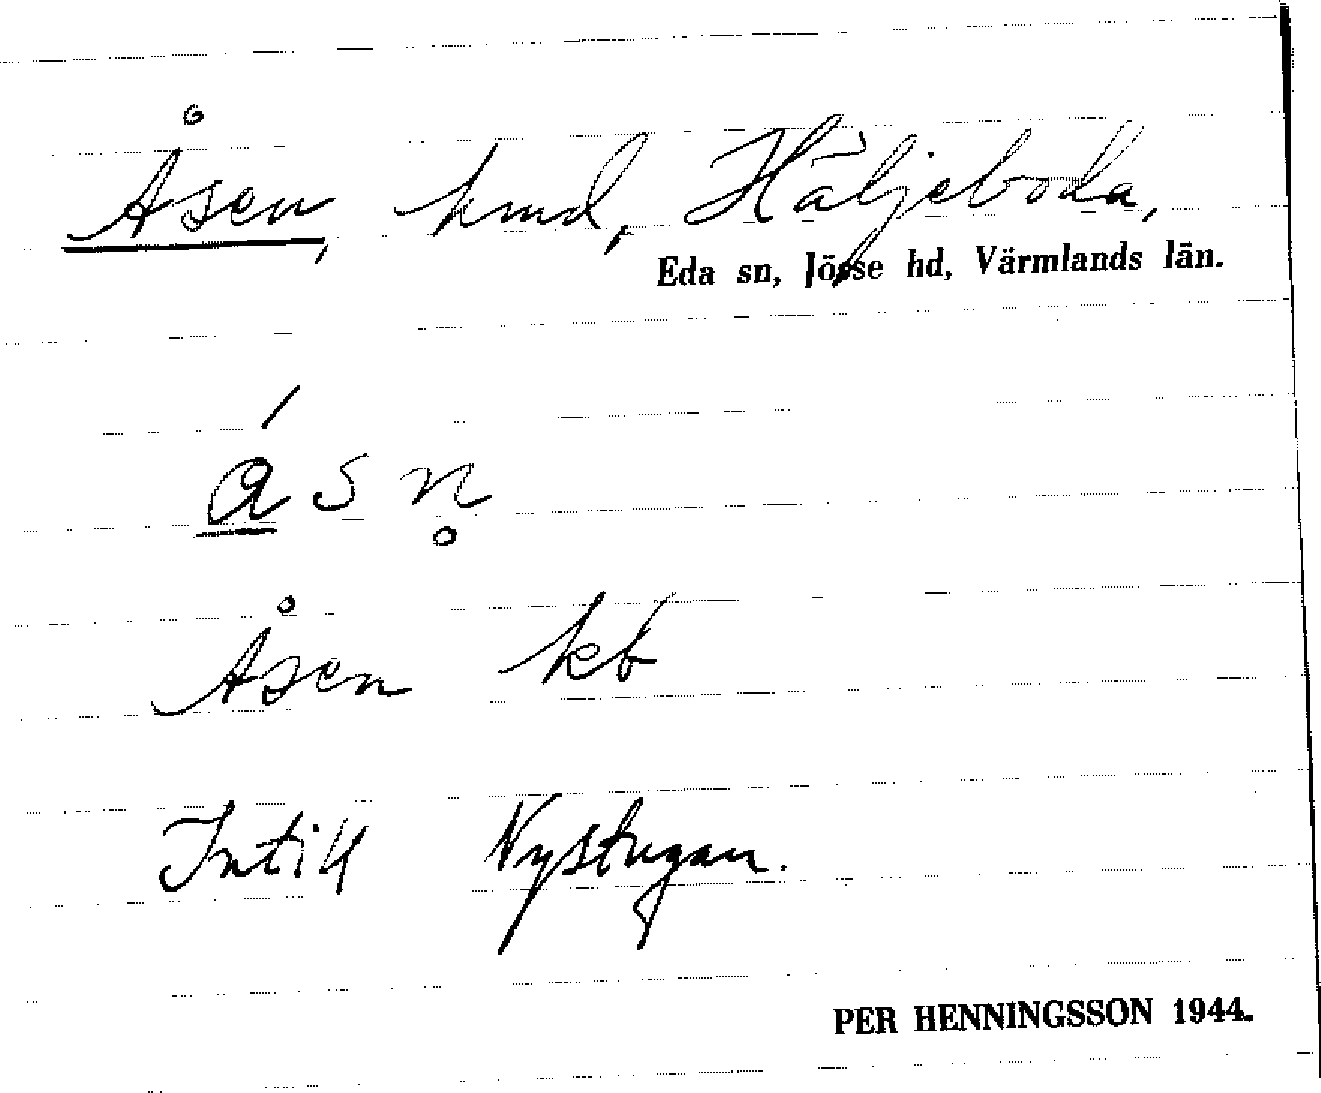 Åsen, hmd, Häljeboda,
Eda sn, Jösse hd, Värmlands län.
ásn̥
Åsen kb
Intill Nystugan.
PER HENNINGSSON 1944.